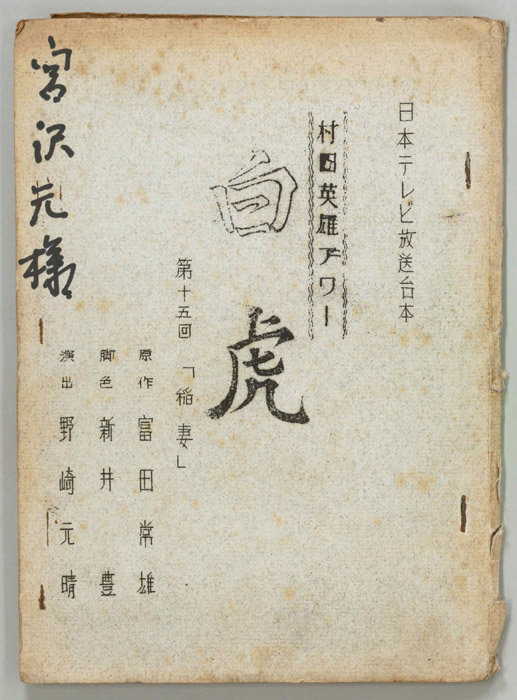 日本テレビ放送台本
村田英雄アワー
白虎
第十五回「稲妻」
原作 富田常雄
脚色 新井豊
演出 野崎元晴
宮沢元様